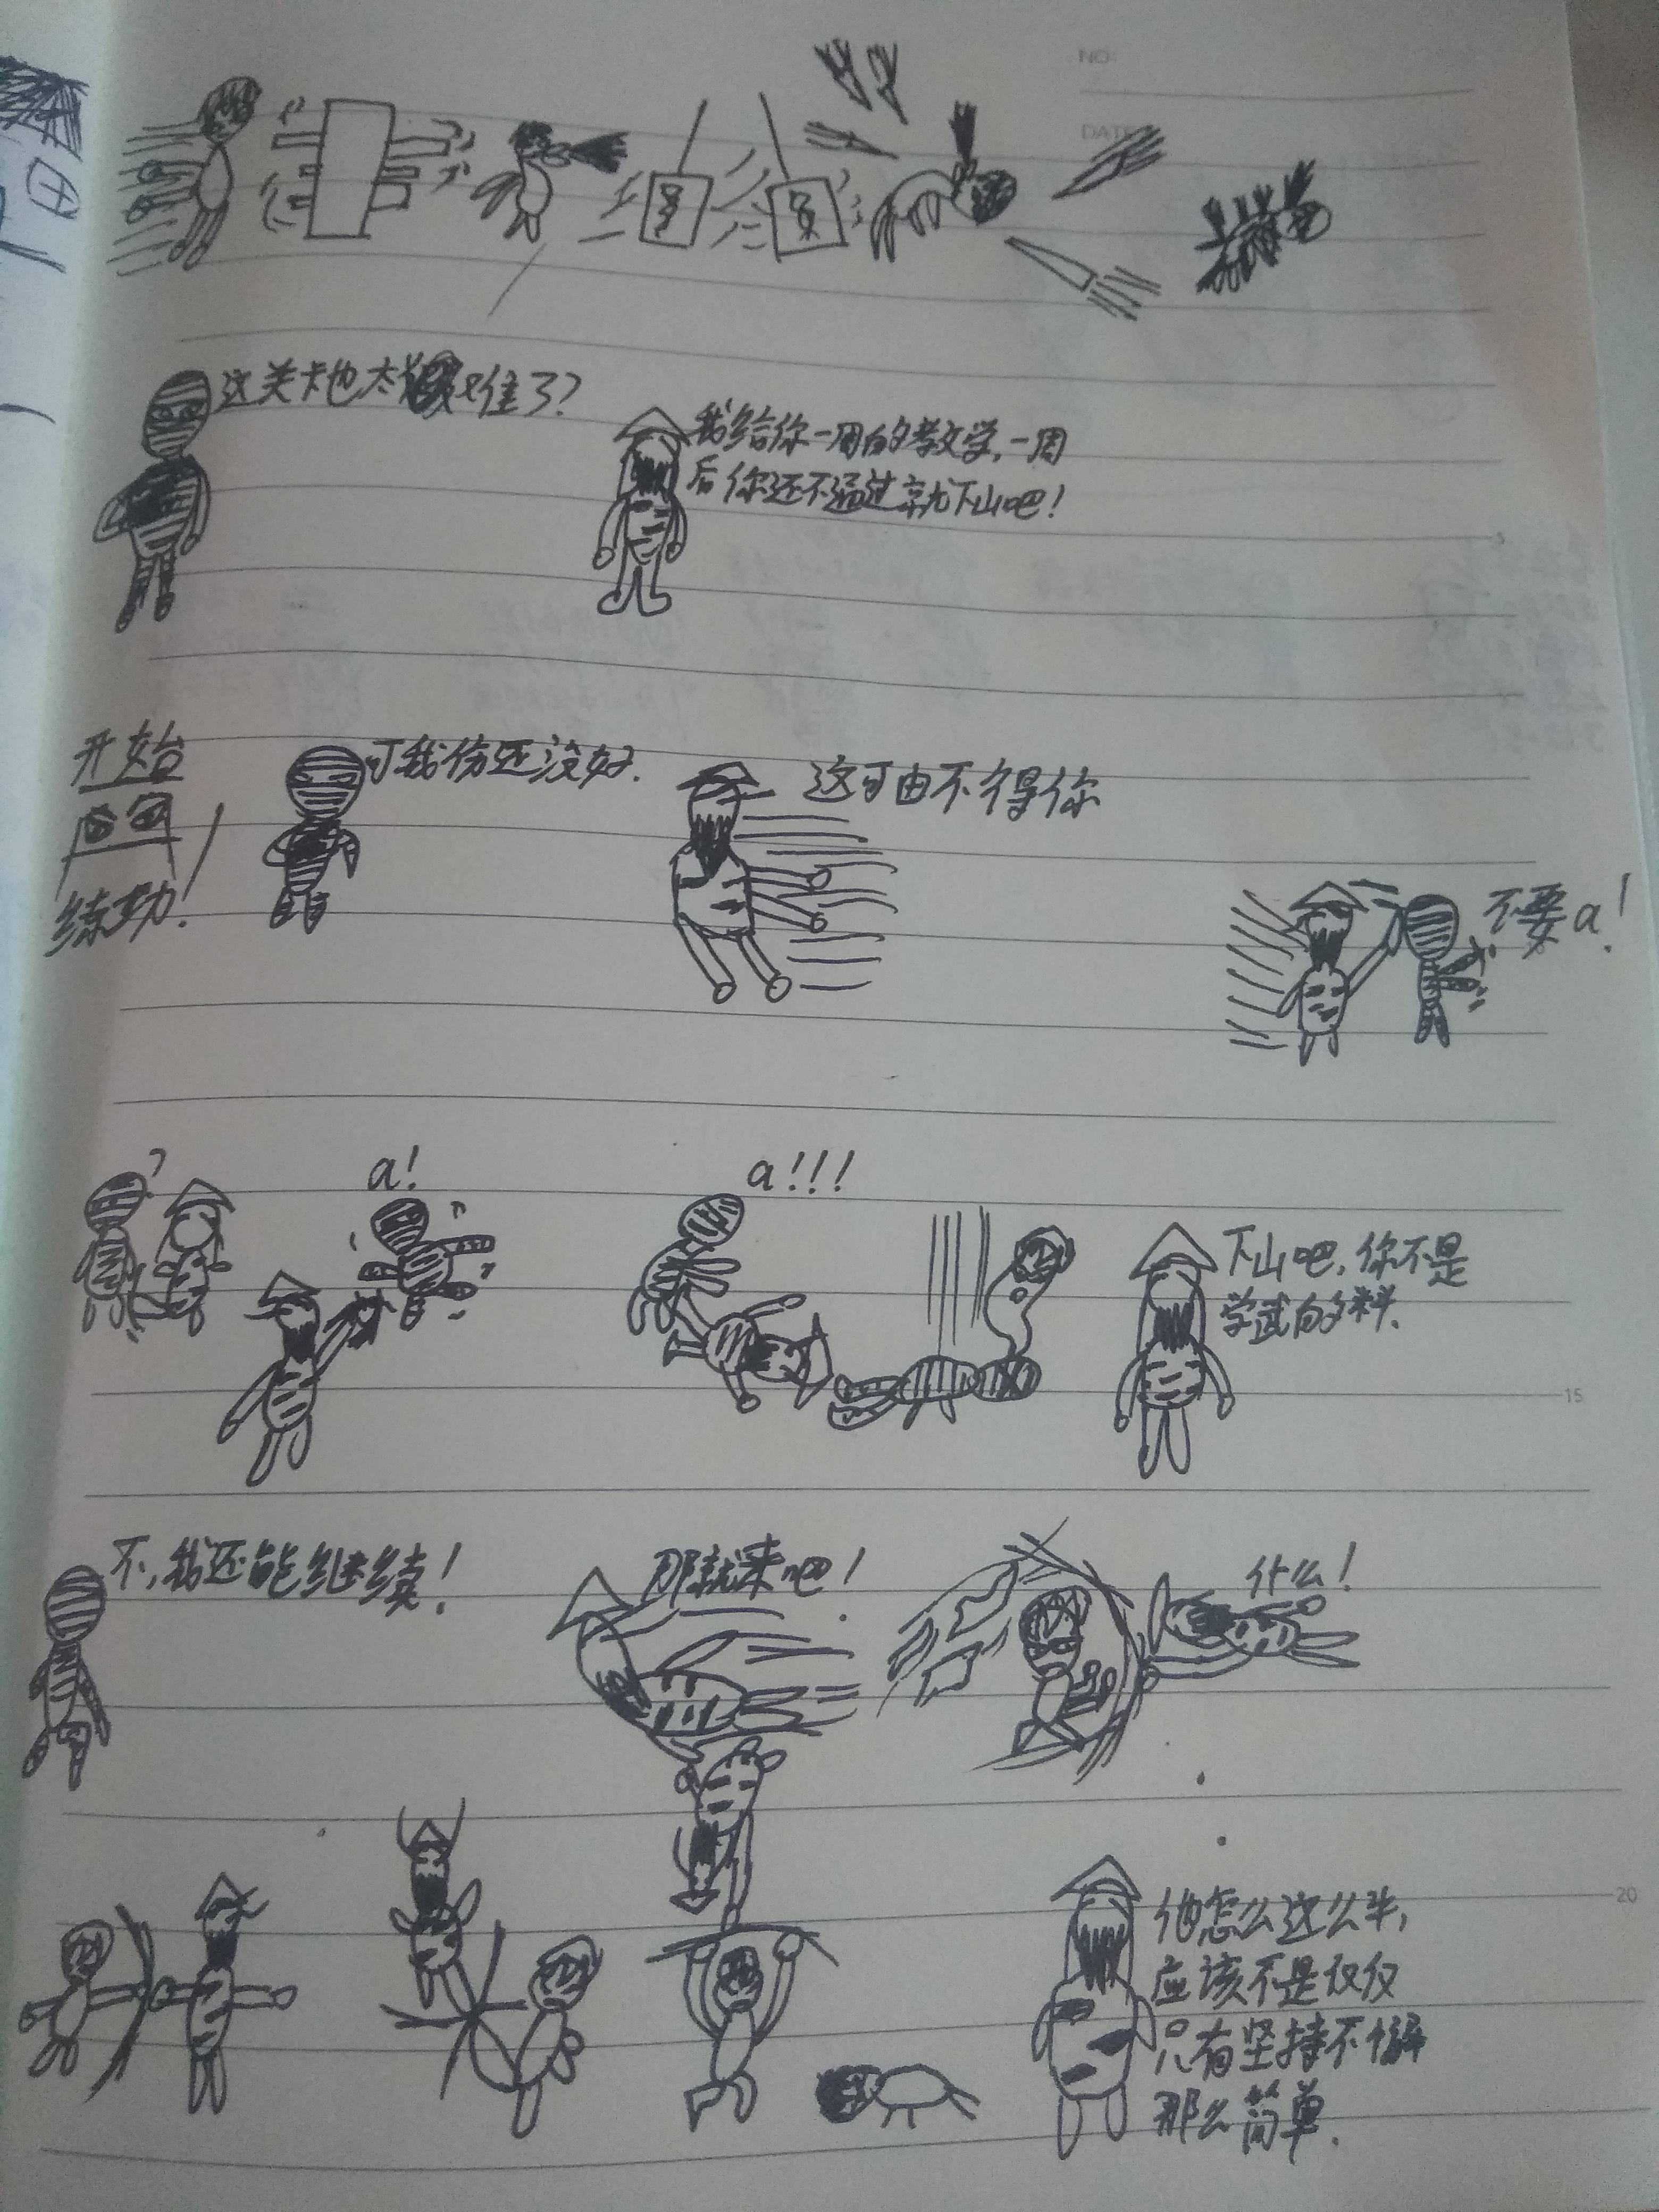 NO:
DATE
这关卡也太难了?
我给你一周的教学,一周
后你还不通过就下山吧!
5
开始
练功!
可我伤还没好.
这可由不得你
不要a!
a!
a!!!
下山吧,你不是
学武的料.
15
不,我还能继续!
那就来吧!
什么!
20
他怎么这么牛,
应该不是仅仅
只有坚持不懈
那么简单.